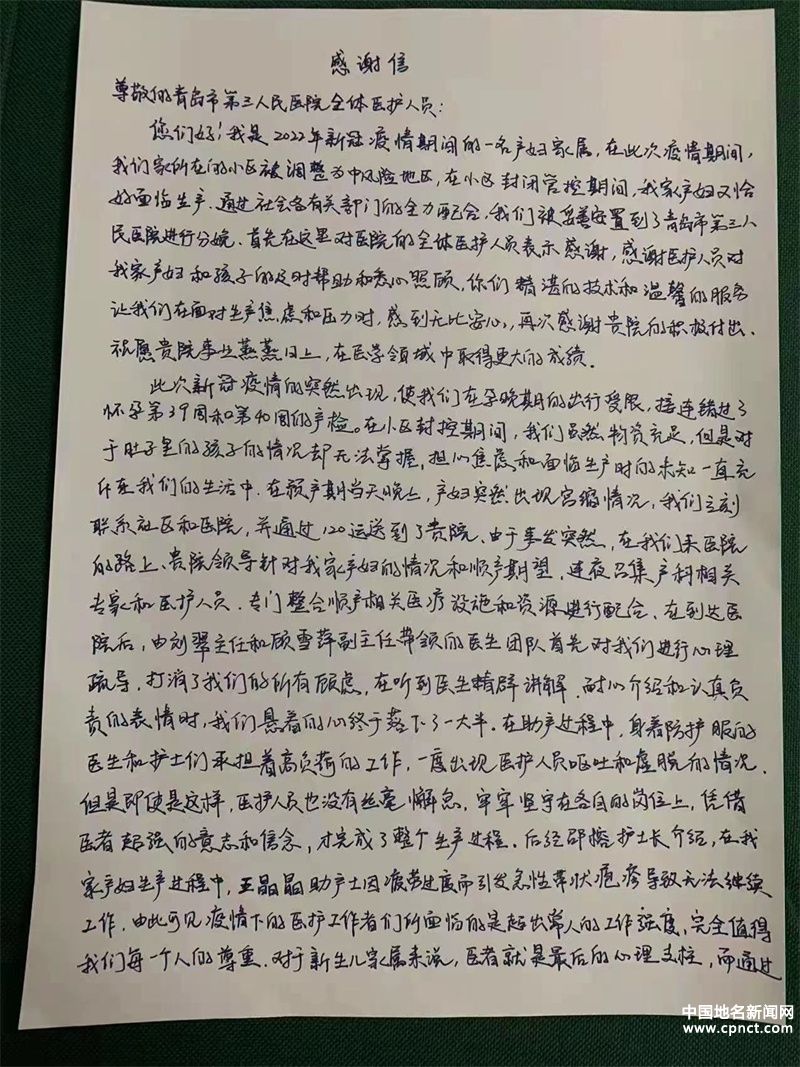 感谢信
尊敬的青岛市第三人民医院全体医护人员：
您们好！我是2022年新冠疫情期间的一名产妇家属，在此次疫情期间，
我们家所在的小区被调整为中风险地区，在小区封闭管控期间，我家产妇又恰
好面临生产．通过社会各有关部门的全力配合，我们被妥善安置到了青岛市第三人
民医院进行分娩．首先在这里对医院的全体医护人员表示感谢，感谢医护人员对
我家产妇和孩子的及时帮助和悉心照顾，你们精湛的技术和温馨的服务
让我们在面对生产焦虑和压力时，感到无比安心，再次感谢贵院的积极付出．
祝愿贵院事业蒸蒸日上，在医学领域中取得更大的成绩．
此次新冠疫情的突然出现，使我们在孕晚期的出行受限，接连错过了
怀孕第39周和第40周的产检。在小区封控期间，我们虽然物资充足，但是对
于肚子里的孩子的情况却无法掌握，担心焦虑和面临生产时的未知一直充
斥在我们的生活中．在预产期当天晚上，产妇突然出现宫缩情况，我们立刻
联系社区和医院，并通过120运送到了贵院、由于事发突然，在我们来医院
的路上、贵院领导针对我家产妇的情况和顺产期望，连夜召集产科相关
专家和医护人员．专门整合顺产相关医疗设施和资源进行配合．在到达医
院后，由刘翠主任和顾雪萍副主任带领的医生团队首先对我们进行心理
疏导．打消了我们的所有顾虑，在听到医生精辟讲解．耐心介绍和认真负
责的表情时，我们悬着的心终于落下了一大半．在助产过程中，身着防护服的
医生和护士们承担着高负荷的工作，一度出现医护人员呕吐和虚脱的情况．
但是即使是这样，医护人员也没有丝毫懈怠，牢牢坚守在各自的岗位上，凭借
医者超强的意志和信念，才完成了整个生产过程．后经邵榕护士长介绍，在我
家产妇生产过程中，王晶晶助产士因疲劳过度而引发急性带状疱疹导致无法继续
工作．由此可见疫情下的医护工作者们所面临的是超出常人的工作强度，完全值得
我们每一个人的尊重．对于新生儿家属来说，医者就是最后的心理支柱，而通过
中国地名新闻网
www.cpnct.com